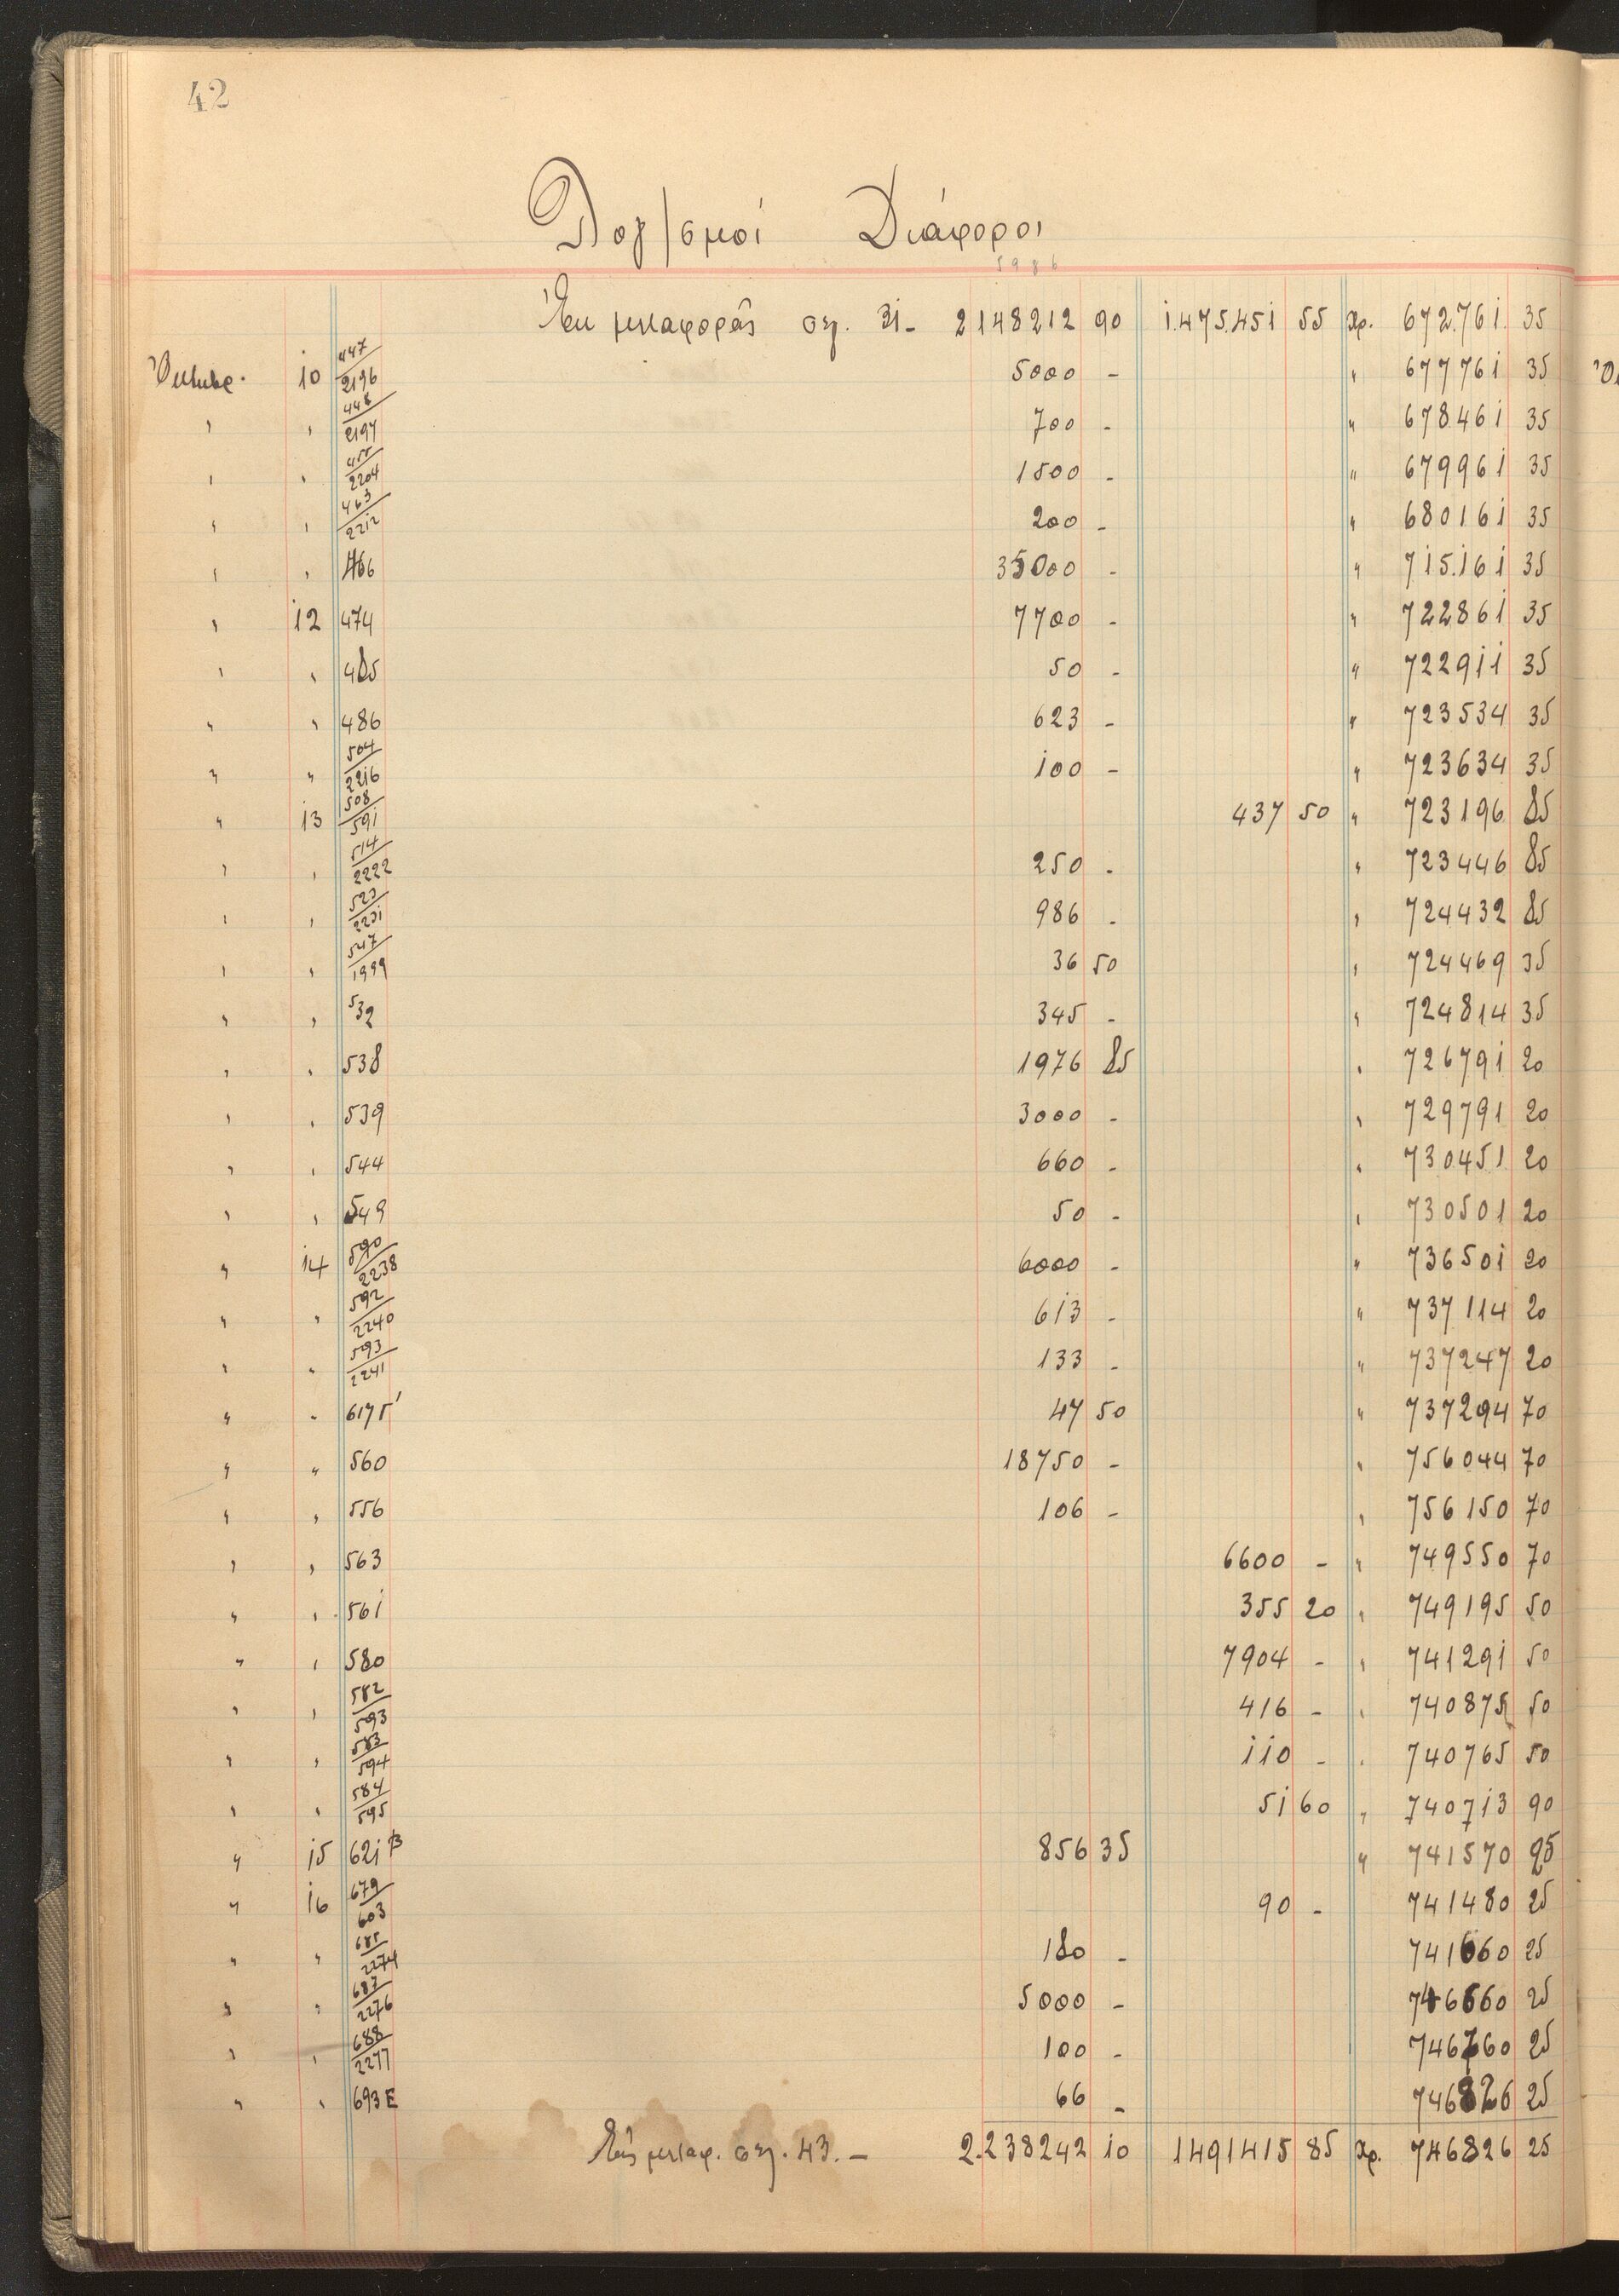 42
Λογ/σμοί Διάφοροι
5986
Ἐκ μεταφορᾶς σελ. 31- 2148212 90 1.475.451 55 Χρ. 672.761 35
Ὀκτωβρ. 10 447/2196 5000 - " 677761 35
" " 448/2197 700 - " 678461 35
" " 455/2204 1500 - " 679961 35
" " 463/2212 200 - " 680161 35
" " 466 35000 - " 715.161 35
" 12 474 7700 - " 722861 35
" " 485 50 - " 722911 35
" " 486 623 - " 723534 35
" " 504/2216 100 - " 723634 35
" 13 508/591 437 50 " 723196 85
" " 514/2222 250 - " 723446 85
" " 523/2231 986 - " 724432 85
" " 547/1999 36 50 " 724469 35
" " 532 345 - " 724814 35
" " 538 1976 85 " 726791 20
" " 539 3000 - " 729791 20
" " 544 660 - " 730451 20
" " 549 50 - " 730501 20
" 14 590/2238 6000 - " 736501 20
" " 592/2240 613 - " 737114 20
" " 593/2241 133 - " 737247 20
" " 617 47 50 " 737294 70
" " 560 18750 - " 756044 70
" " 556 106 - " 756150 70
" " 563 6600 - " 749550 70
" " 561 355 20 " 749195 50
" " 580 7904 - " 741291 50
" " 582/593 416 - " 740875 50
" " 583/594 110 - " 740765 50
" " 584/595 51 60 " 740713 90
" 15 621β 856 35 " 741570 25
" 16 679/603 90 - 741480 25
" " 685/2274 180 - 741660 25
" " 687/2276 5000 - 746660 25
" " 688/2277 100 - 746760 25
" " 693Ε 66 - 746826 25
Εἰς μεταφ. σελ. 43.- 2.238242 10 1491415 85 Χρ. 746826 25